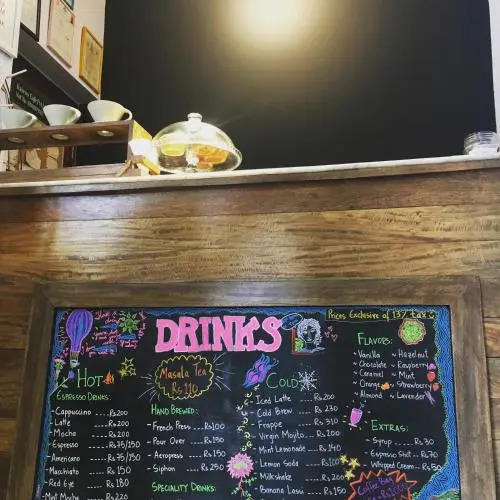 Prices Exclusive of 13% tax
DRINKS
Masala Tea
Rs 110
HOT
ESPRESSO DRINKS:
Cappuccino ....Rs200
-Latte ....Rs 200
-Mocha ....Rs 200
-Espresso ....Rs75/150
-Americano ....Rs 75/150
Macchiato ....Rs 150
Red Eye ....Rs 180
Mint Mocha ....Rs 220
HAND BREWED:
- French Press ....Rs100
- Pour Over ....Rs 150
- Aeropress ....Rs 150
- Siphon ....Rs 250
SPECIALITY DRINKS:
COLD
- Iced Latte ....Rs 200
- Cold Brew ....Rs 230
- Frappe ....Rs 310
- Virgin Mojito ....Rs 200
- Mint Lemonade ....Rs 140
- Lemon Soda ....Rs 100
- Milkshake ....Rs 200
- Banana Lassi ....Rs 150
FLAVORS:
~ Vanilla ~ Hazelnut
~ Chocolate ~ Raspberry
~ Caramel ~ Mint
~ Orange ~ Strawberry
~ Almond ~ Lavender
EXTRAS:
- Syrup ....Rs 30
- Espresso Shot ....Rs70
- Whipped Cream ....Rs50
Coffee Bag